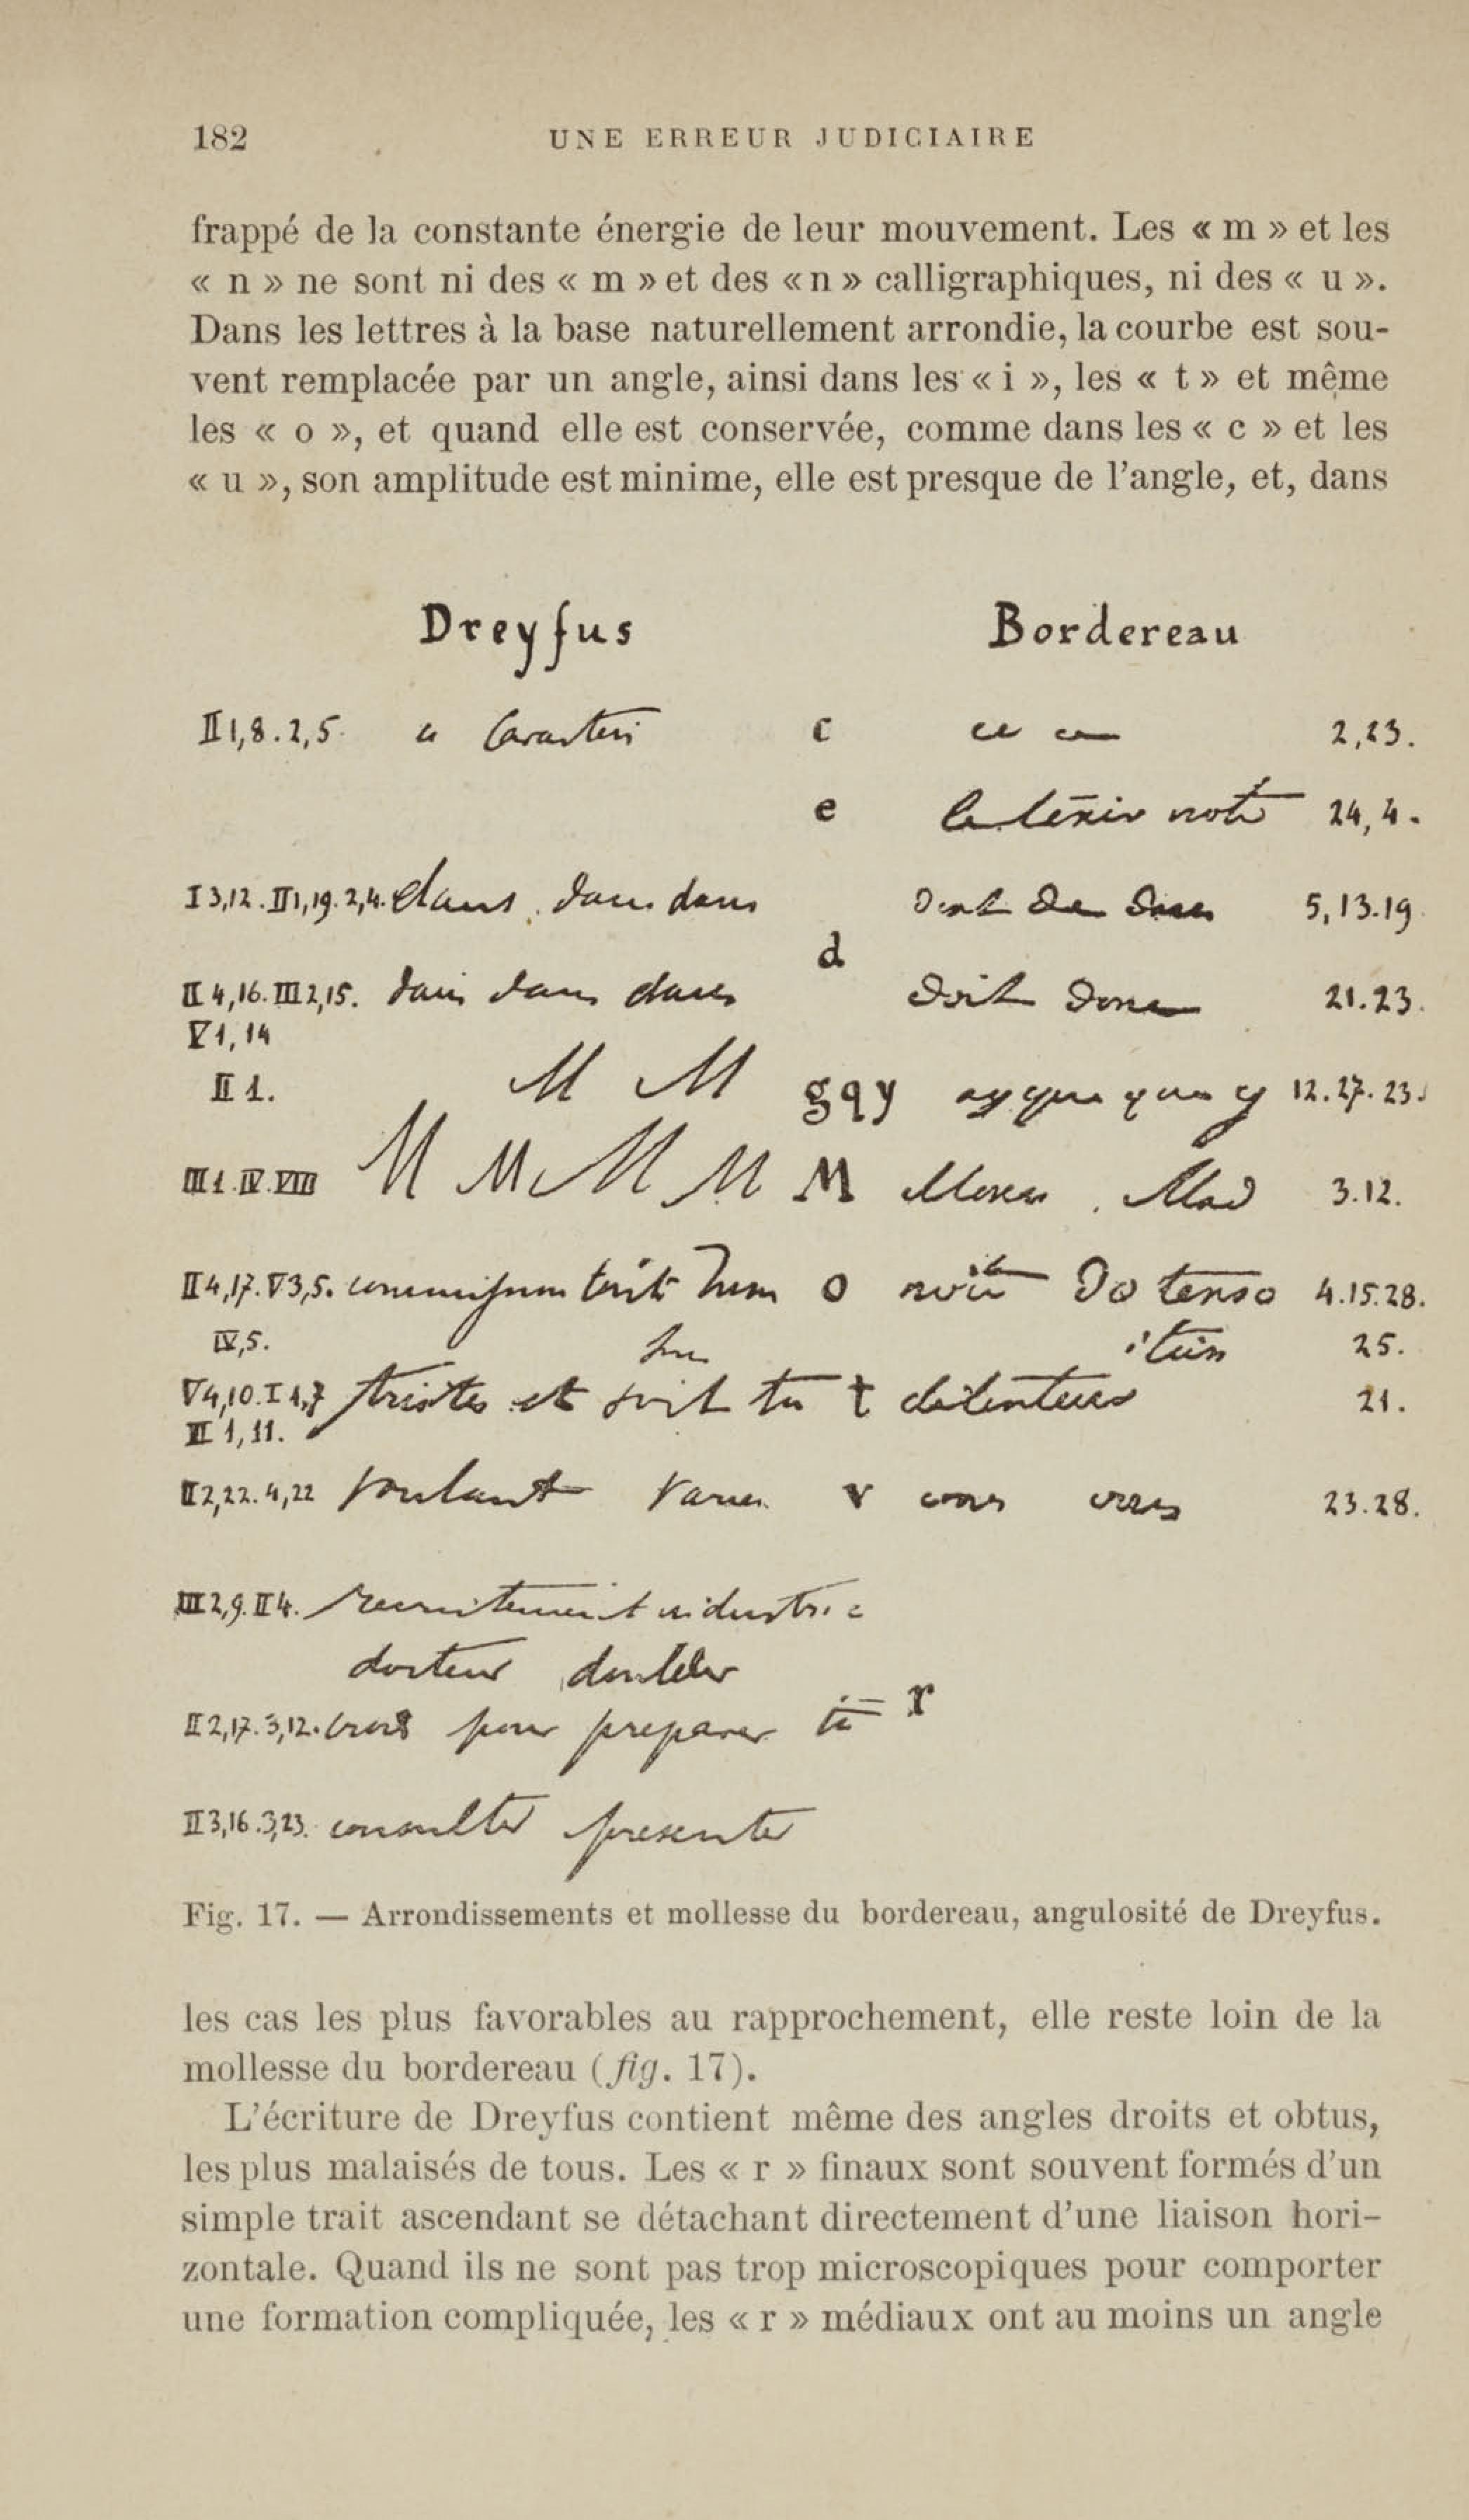 182 UNE ERREUR JUDICIAIRE
frappé de la constante énergie de leur mouvement. Les « m » et les
« n » ne sont ni des « m » et des « n » calligraphiques, ni des « u ».
Dans les lettres à la base naturellement arrondie, la courbe est sou-
vent remplacée par un angle, ainsi dans les « i », les « t » et même
les « o », et quand elle est conservée, comme dans les « c » et les
« u », son amplitude est minime, elle est presque de l'angle, et, dans
Dreyfus Bordereau
II 1,8.2,5. c ce 2,23.
e note 24,4.
I 3,12.III 1,19.2,4. dans dans dans 5,13.19
d
II 4,16.III 2,15. dans dans dans doit donc 21.23.
V 1,14
II 1. M M g q y 12.27.23.
III 1.IV.VIII M M M M M Mad 3.12.
II 4,17.V 3,5. o 4.15.28.
IV,5. 25.
V 4,10.I 1,7 tristes et soit tu t détenteurs 21.
II 1,11.
II 2,22.4,22 voulant v vous 23.28.
III 2,9.II 4. recrutement industrie
docteur doubler
II 2,17.3,12. pour preparer r
II 3,16.3,23. consulter presenter
Fig. 17. — Arrondissements et mollesse du bordereau, angulosité de Dreyfus.
les cas les plus favorables au rapprochement, elle reste loin de la
mollesse du bordereau (fig. 17).
L'écriture de Dreyfus contient même des angles droits et obtus,
les plus malaisés de tous. Les « r » finaux sont souvent formés d'un
simple trait ascendant se détachant directement d'une liaison hori-
zontale. Quand ils ne sont pas trop microscopiques pour comporter
une formation compliquée, les « r » médiaux ont au moins un angle